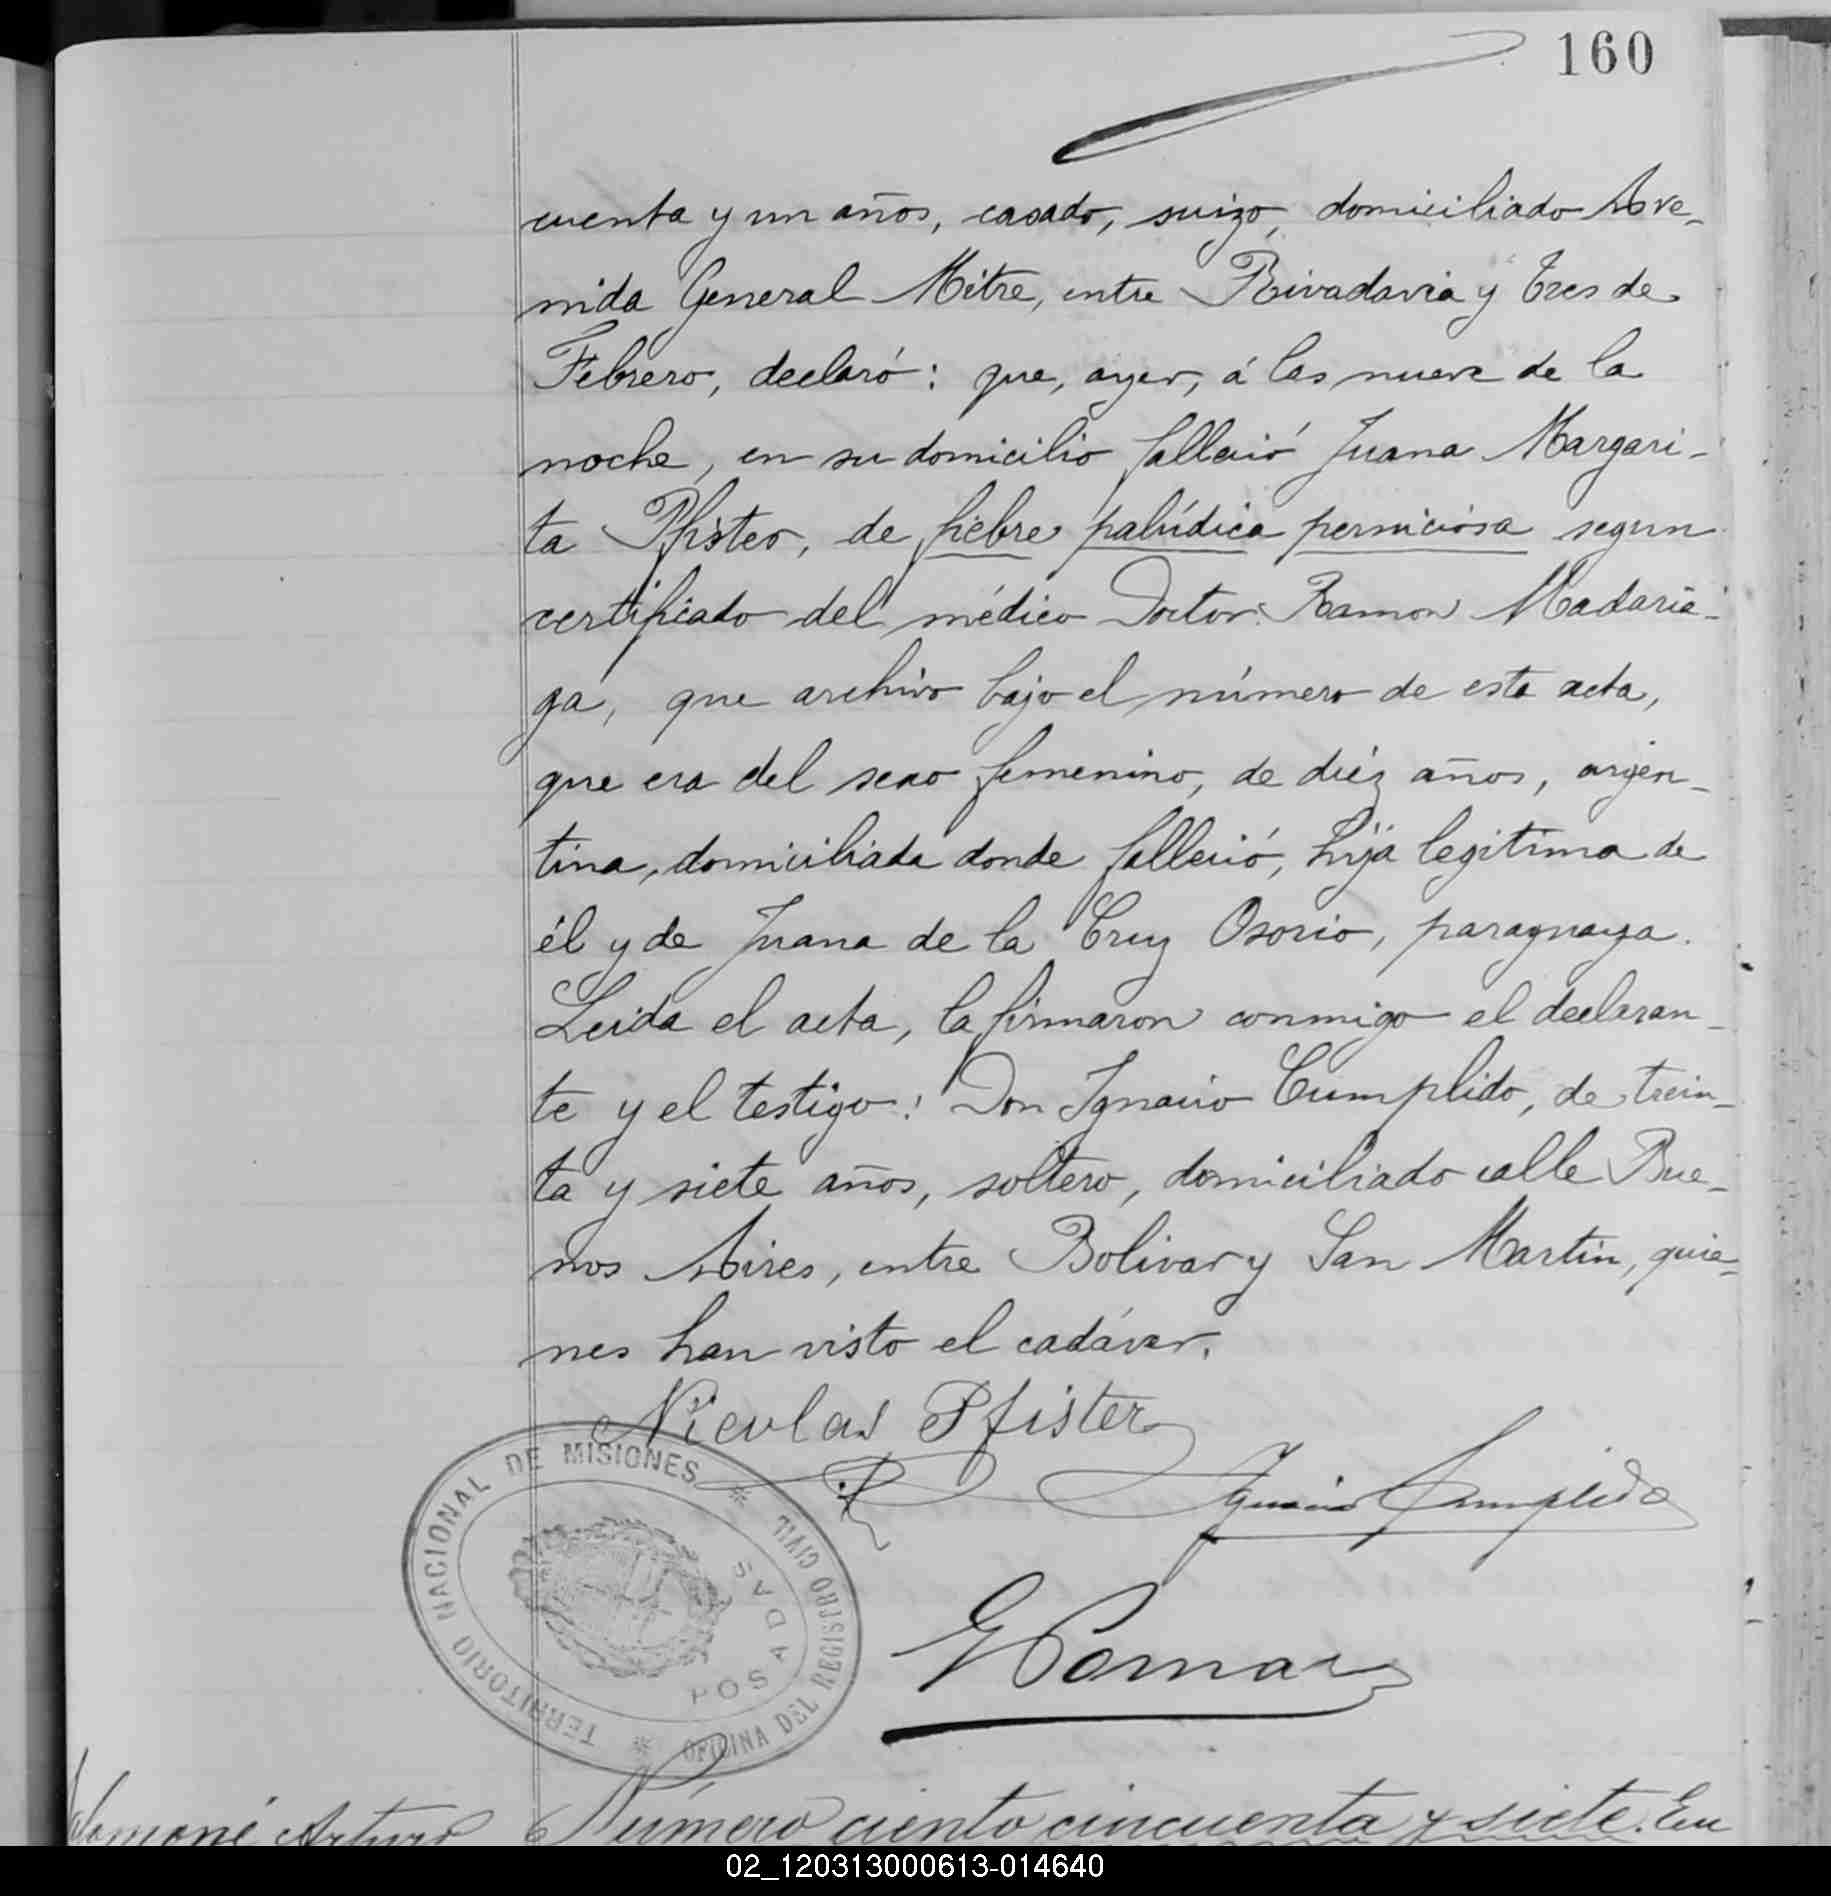 160
cuenta y un años, casado, suizo, domiciliado Ave-
nida General Mitre, entre Rivadavia y Tres de
Febrero, declaró: que, ayer, á las nueve de la
noche, en su domicilio falleció Juana Margari-
ta Pfister, de fiebre palúdica perniciosa segun
certificado del médico Doctor Ramon Madaria-
ga, que archivo bajo el número de esta acta,
que era del sexo femenino, de diéz años, arjen-
tina, domiciliada donde falleció, hija legitima de
él y de Juana de la Cruz Osorio, paraguaya.
Leida el acta, la firmaron conmigo el declaran-
te y el testigo: Don Ignacio Cumplido, de trein-
ta y siete años, soltero, domiciliado calle Bue-
nos Aires, entre Bolivar y San Martin, quie-
nes han visto el cadáver.
Nicolas Pfister
Ignacio Cumplido
TERRITORIO NACIONAL DE MISIONES * OFICINA DEL REGISTRO CIVIL *
POSADAS
Arturo Número ciento cincuenta y siete. En
02_120313000613-014640